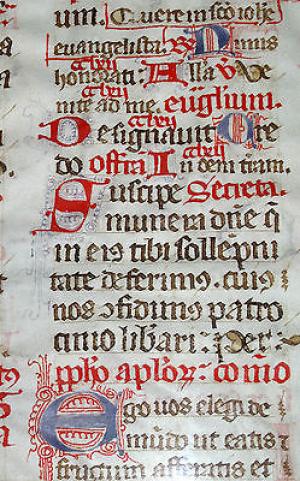 um. Quere in scō iohe
euangelista. R Nimis
honorati. Alla v Ve
nite ad me. Euglium.
Designauit Cre
do offra In õem trām.
Suscipe Secreta.
munera dñe q̃
in eis tibi sollēpni
tate deferimꝰ. cuiꝰ
nos ↄfidimꝰ patro
cinio libari: Per.
Ego uos elegi de
mūdo ut eatis ⁊
fructum afferatis et